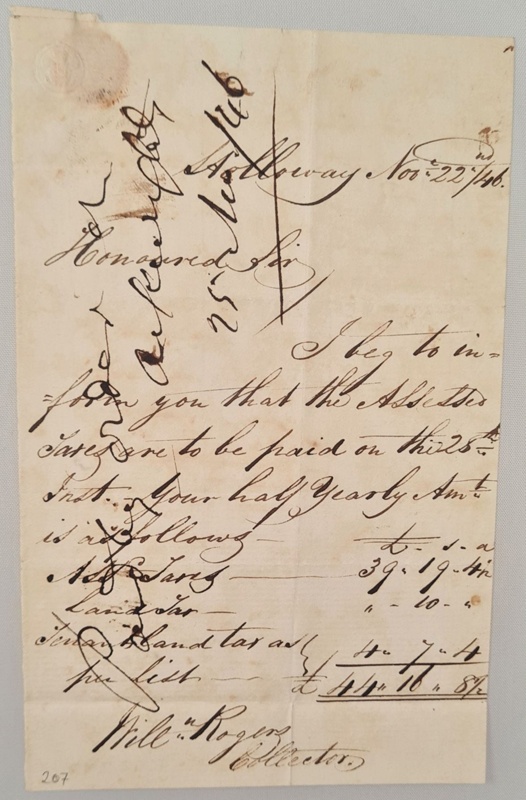 Holloway Novr 22nd/46.
Honoured Sir
I beg to in=
=form you that the Assessed
Taxes are to be paid on the 28th
Inst. - Your half Yearly Amt
is as follows - £ - s - d
Assd Taxes - 39 " 19 - 4½
Land Tax - " - 10 - "
Tenants land tax as
per list - 4 " 7 " 4
£ 44 " 16 " 8½
Willm Rogers
Collector.
order on
25 Nov/46
207